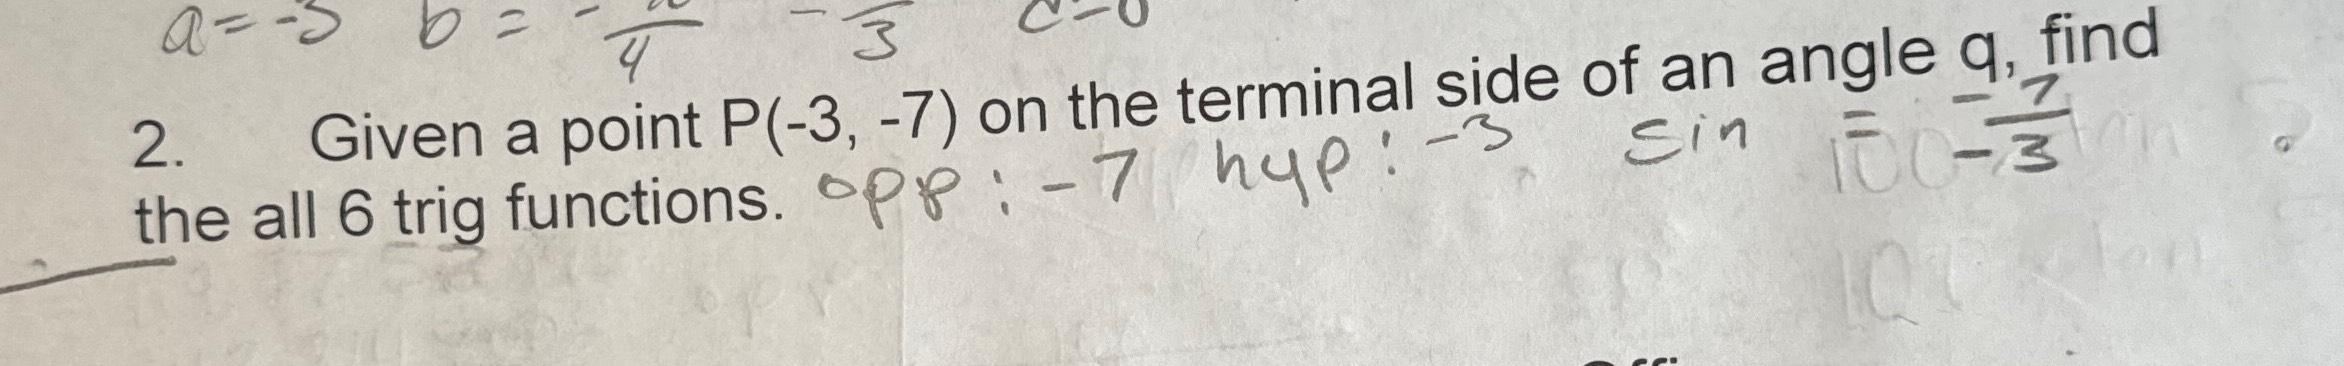 a = -3 b = - 4 - 3 c = 0
2. Given a point P(-3, -7) on the terminal side of an angle q, find
the all 6 trig functions. opp : -7 hyp : -3 sin = -7/-3